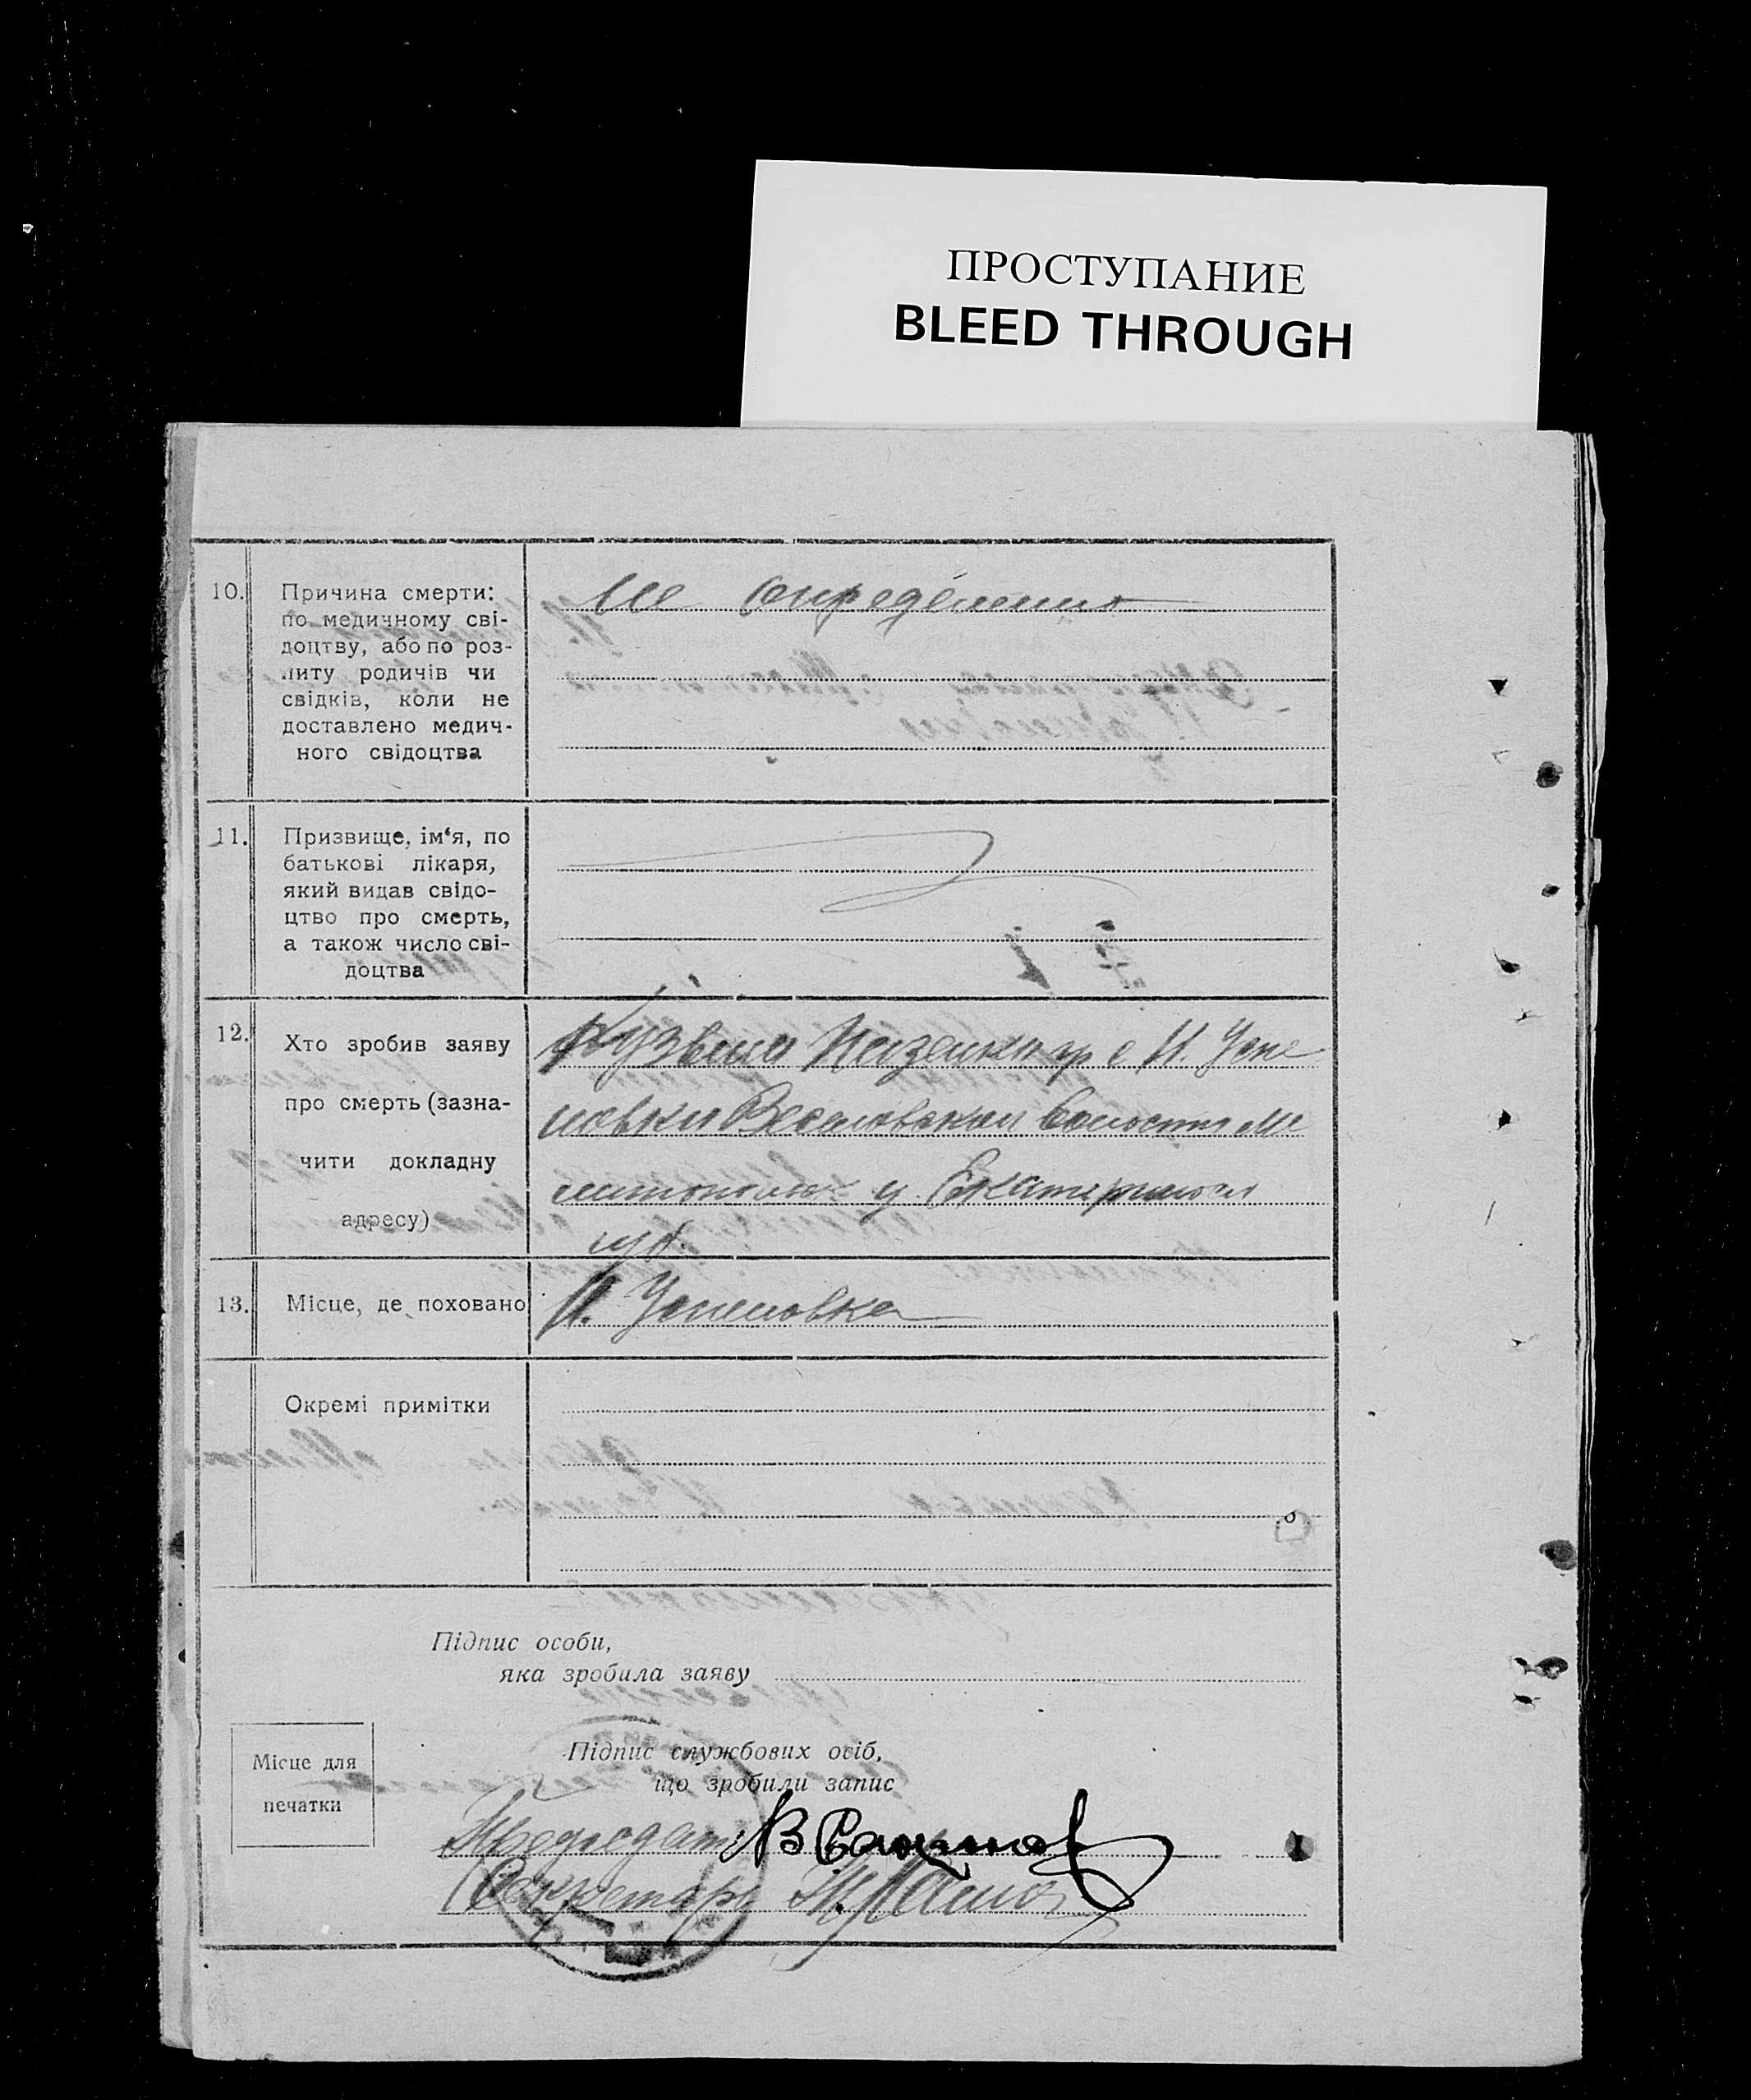 ПРОСТУПАНИЕ
BLEED THROUGH
10.
Причина смерти:
по медичному сві-
доцтву, або по роз-
питу родичів чи
свідків, коли не
доставлено медич-
ного свідоцтва
Не определено
11.
Призвище, ім‘я, по
батькові лікаря,
який видав свідо-
цтво про смерть,
а також число сві-
доцтва
12.
Хто зробив заяву
про смерть (зазна-
чити докладну
адресу)
гр с Н. Успе
новки Веселовской волости Ме
литополь у. Екатеринос
губ.
13.
Місце, де поховано
Н. Успеновка
Окремі примітки
Підпис особи,
яка зробила заяву
Місце для
печатки
Підпис службових осіб,
що зробили запис
Председат
Секретарь